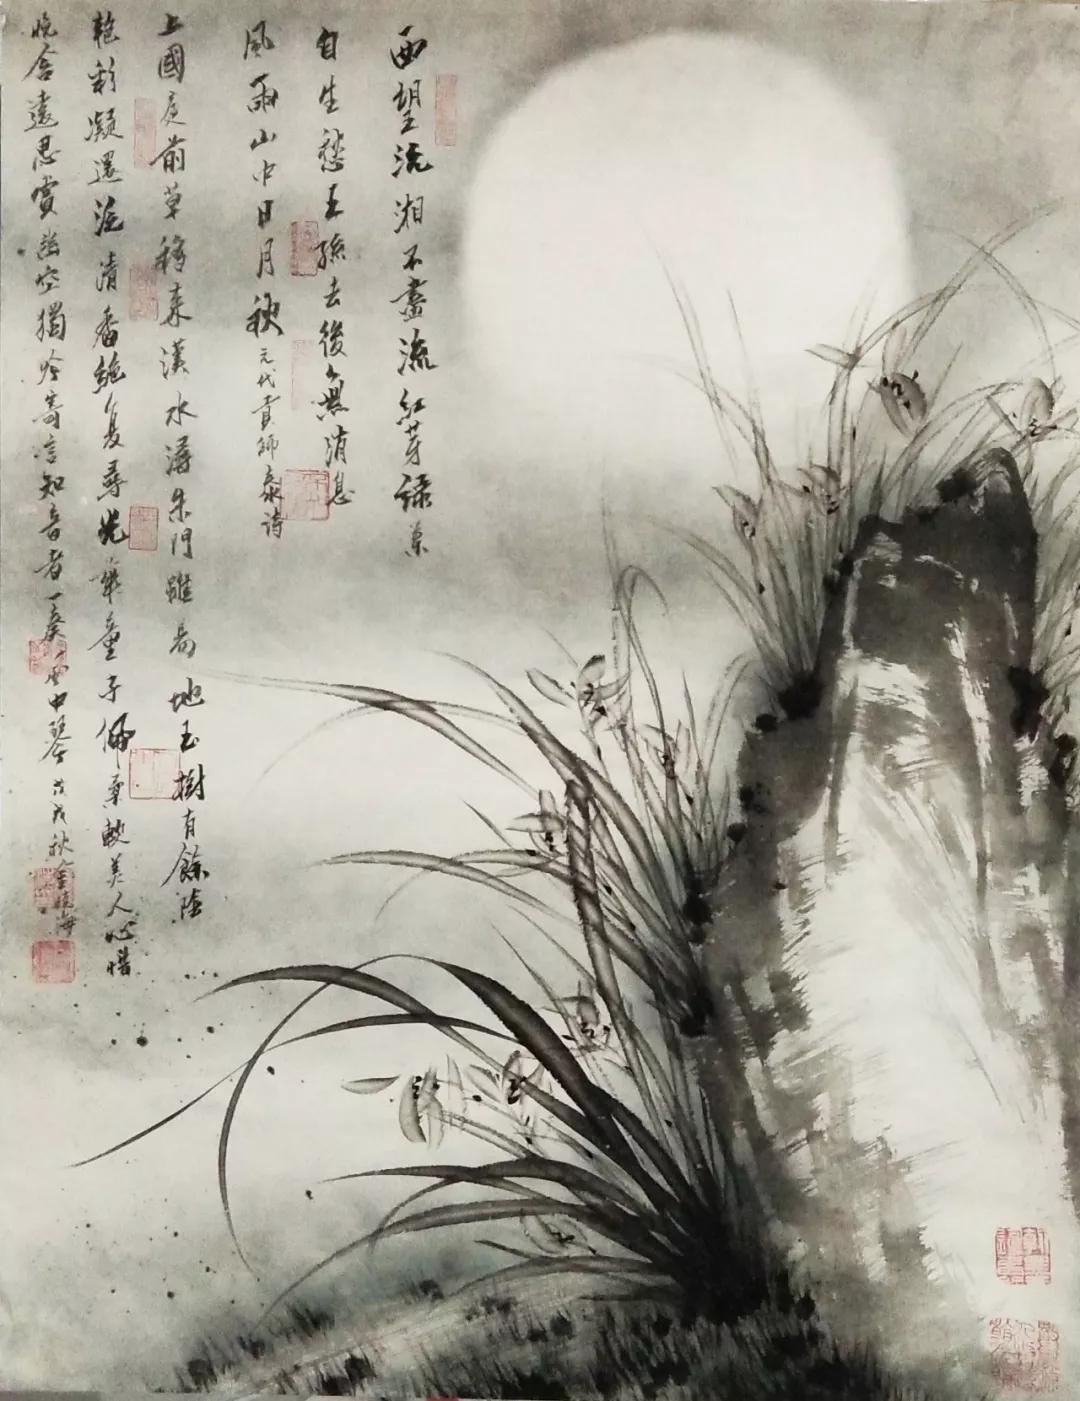 西望沅湘不盡流紅芽綠葉
自生愁王孫去後無消息
風雨山中日月秋元代貢師泰詩
上國庭前草移來漢水潯朱門雖易地玉樹有餘陰
艷彩凝還泛清香絕复尋光華童子佩柔軟美人心惜
晚含遠思賞幽空獨吟寄言知音者一奏風中琴戊戌秋金曉海